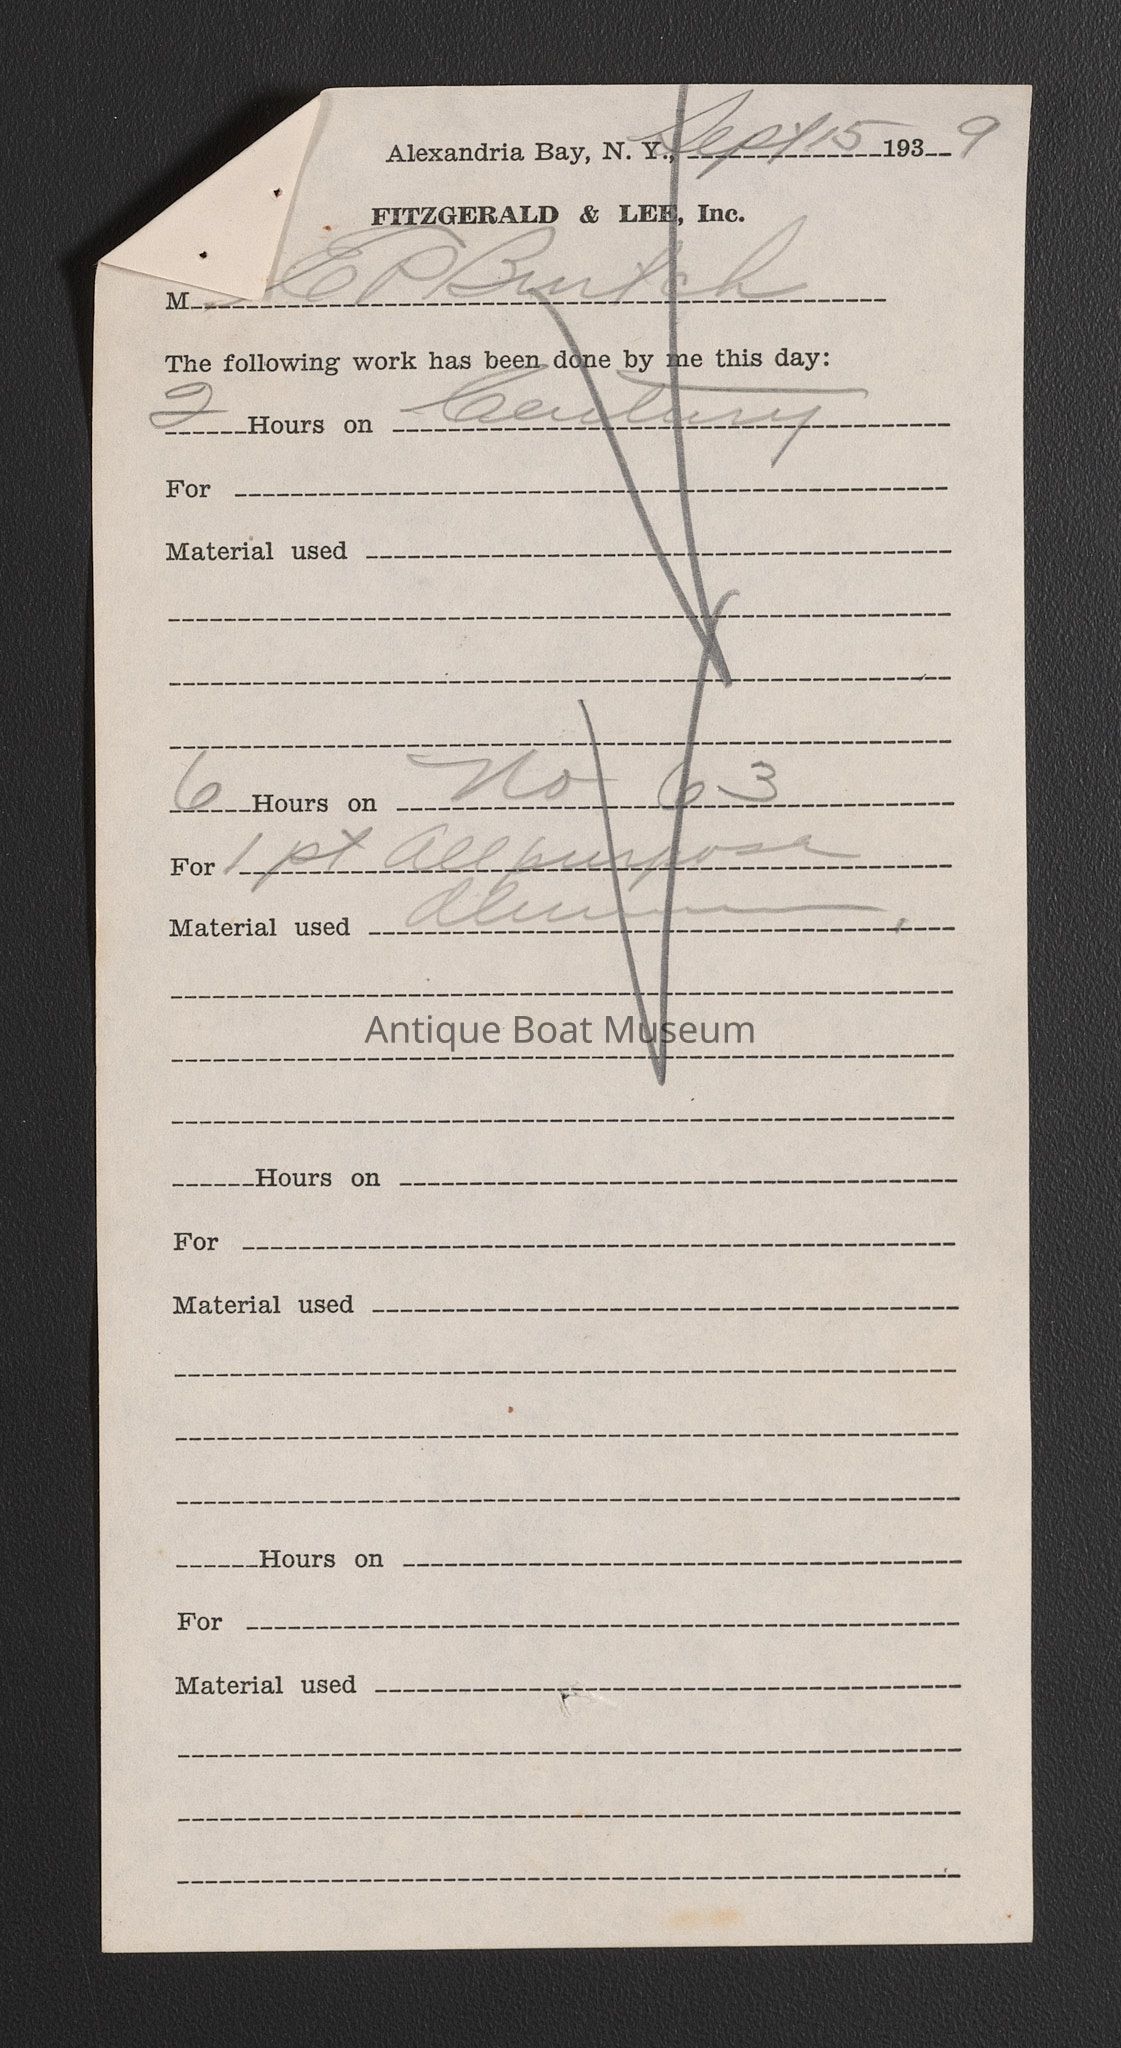 Alexandria Bay, N. Y., Sept 15 1939
FITZGERALD & LEE, Inc.
M E P Burtch
The following work has been done by me this day:
2 Hours on Century
For
Material used
6 Hours on No 63
For 1 pt All purpose
Material used
Antique Boat Museum
Hours on
For
Material used
Hours on
For
Material used